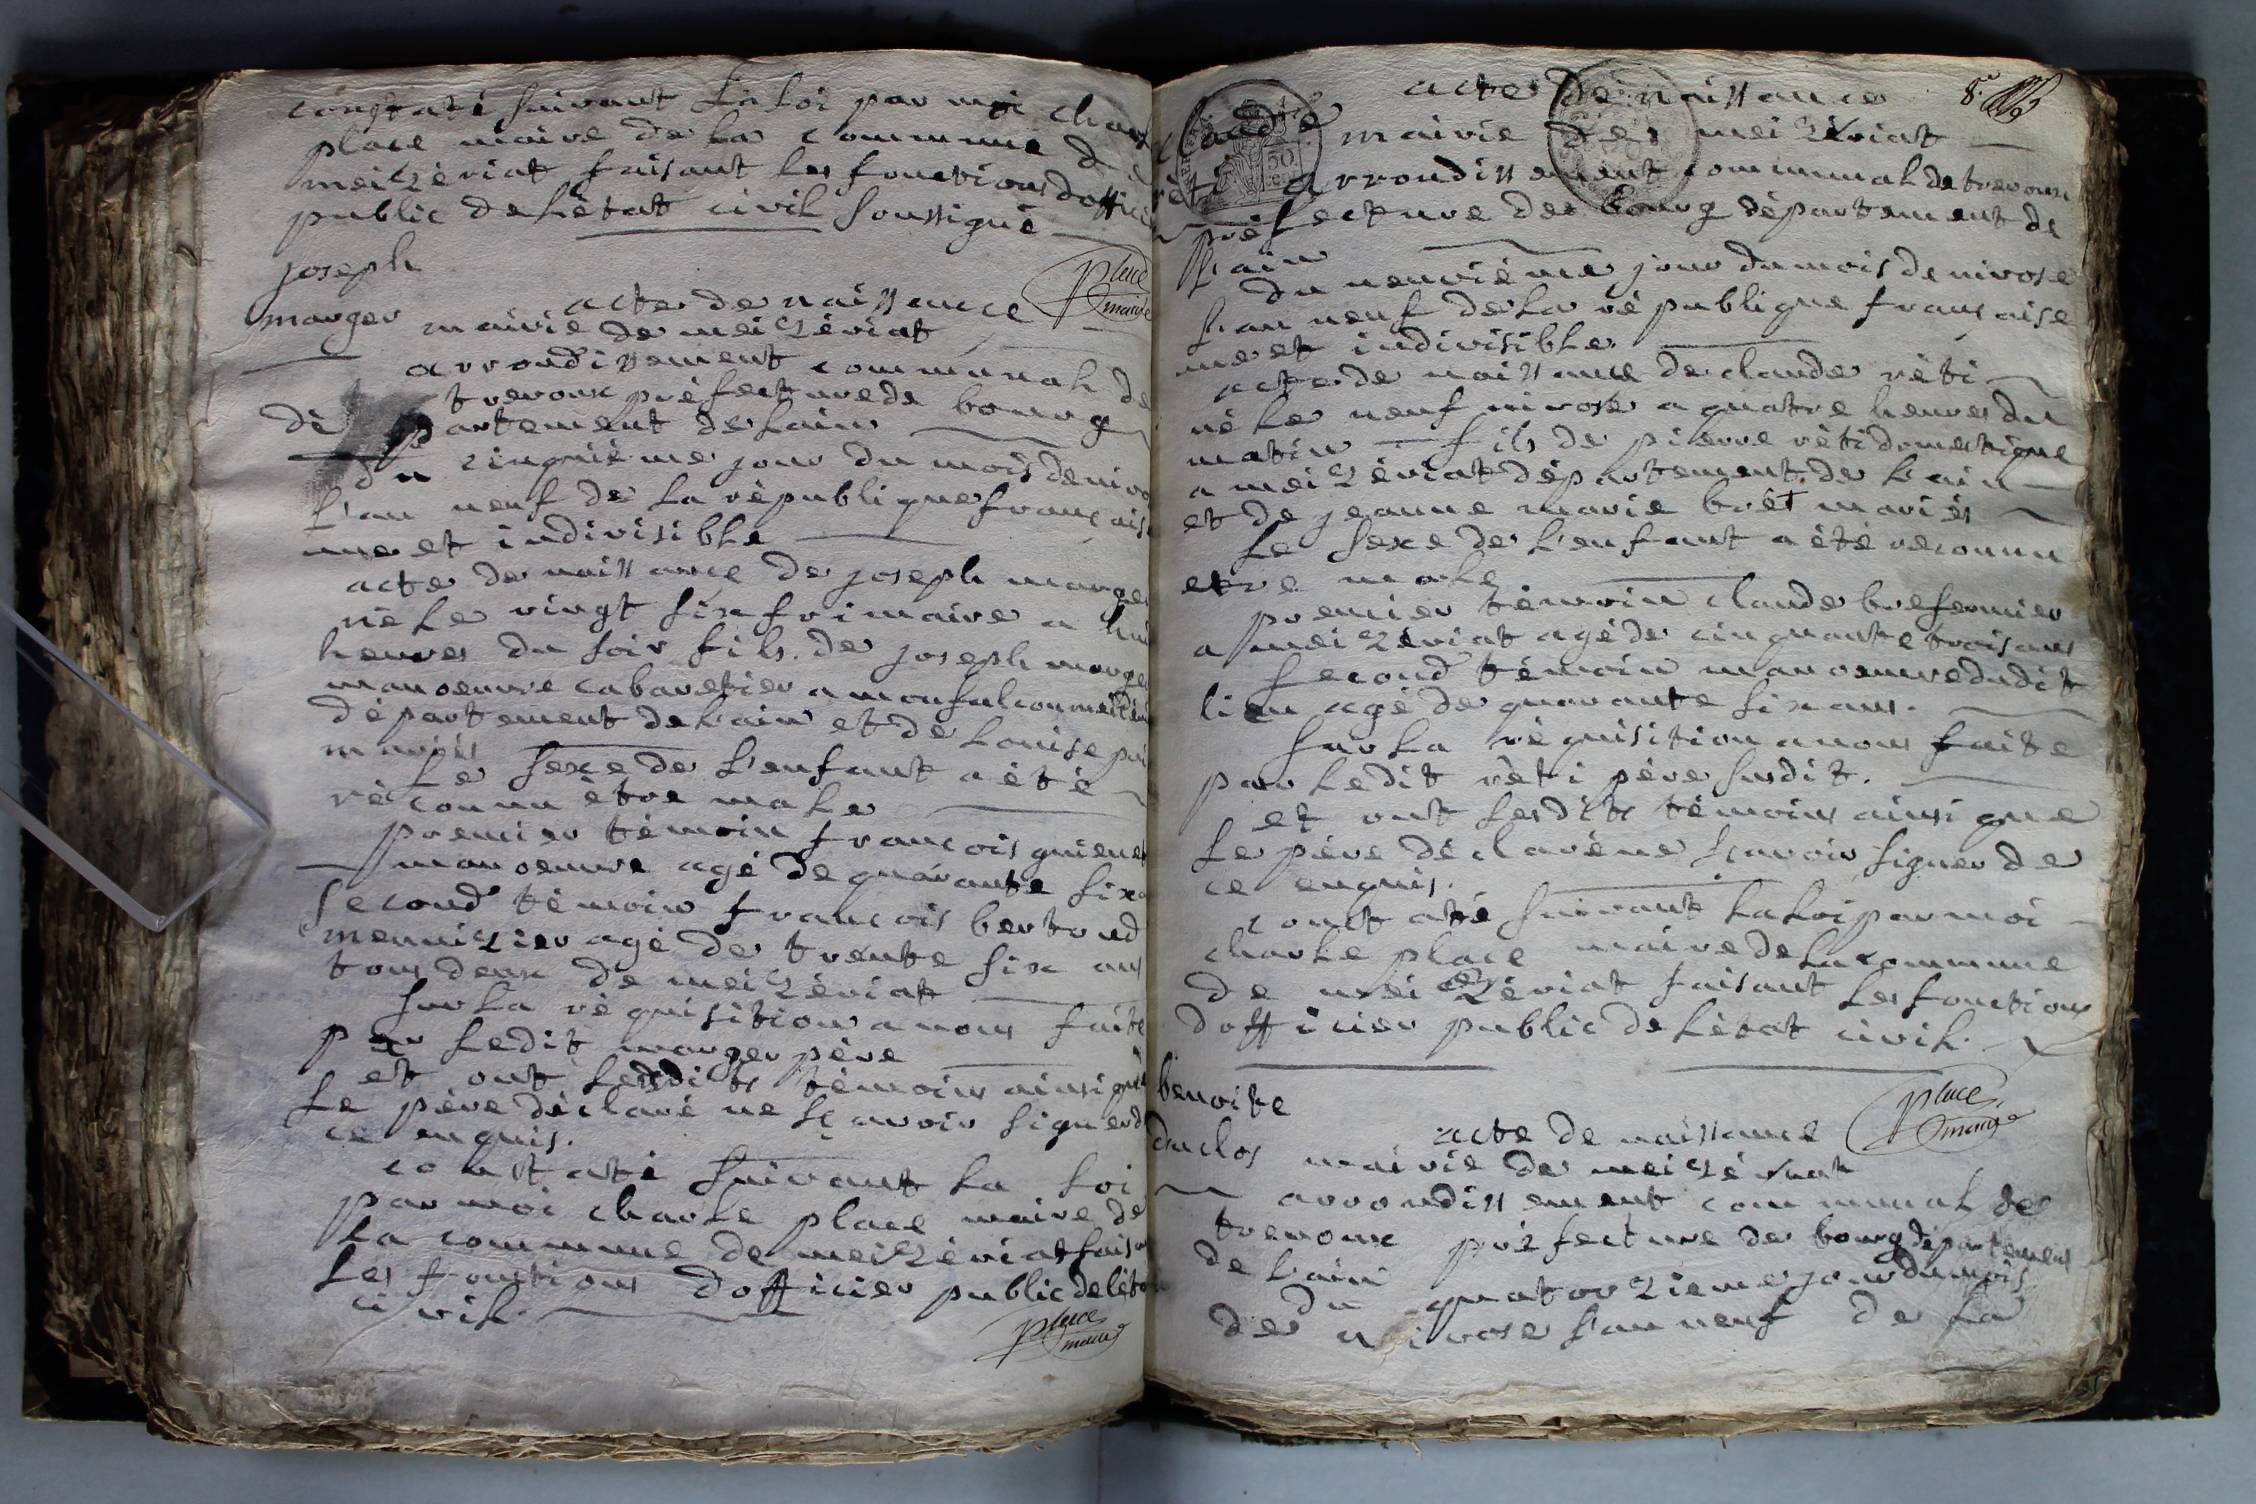 constaté suivant la loi par moi char
place maire de la commune de
meizériat faisant les fonctions doffici
public de l'état civil soussigné
place
maire
joseph
marger
acte de naissance
mairie de meizériat
arrondissement communal de
trevoux préfecture de bourg
département de lain
du cinquième jour du mois de nivo
l'an neuf de la république français
une et indivisible
acte de naissance de joseph marger
né le vingt six frimaire a hui
heures du soir fils de joseph marger
manoeuvre cabaretier a monfalcon
département de l'ain et de louise
mariés
le sexe de l'enfant a été
réconnu être male
premier témoin francois
manoeuvre agé de quarante six
second témoin francois bertrud
menuizier agé de trente six ans
tous deux de meizériat
sur la réquisition a nous faite
par ledit marger père
et ont lesdits témoins ainsi que
le père déclaré ne sçavoir signer d
ce enquis.
constaté suivant la loi
par moi charle place maire de
la commune de meizériat fais
les fonctions dofficier public de léta
civil.
place
maire
8e
claude
réti
acte de naissance
mairie de meizériat
arrondissement communal de trevoux
préfecture de bourg département de
l'ain
du neuvième jour du mois de nivose
l'an neuf de la république francaise
une et indivisible
acte de naissance de claude réti
né le neuf nivose a quatre heures du
matin fils de pierre réti domestique
a meizériat département de l'ain
et de jeanne marie brét mariés
le sexe de l'enfant a été reconnu
etre male
premier témoin claude bre fermier
a meizériat agé de cinquante trois ans
second témoin manoeuvre dudit
lieu agé de quarante six ans.
sur la réquisition a nous faite
par ledit réti père susdit.
et ont lesdits témoins ainsi que
le père déclaré ne sçavoir signer de
ce enquis.
constaté suivant la loi par moi
charle place maire de la commune
de meizériat faisant les fonctions
dofficier public de l'état civil.
place
maire
benoite
duclos
acte de naissance
mairie de meizériat
arrondissement communal de
trevoux préfecture de bourg département
de l'ain
du quatorzieme jour du mois
de nivose l'an neuf de la